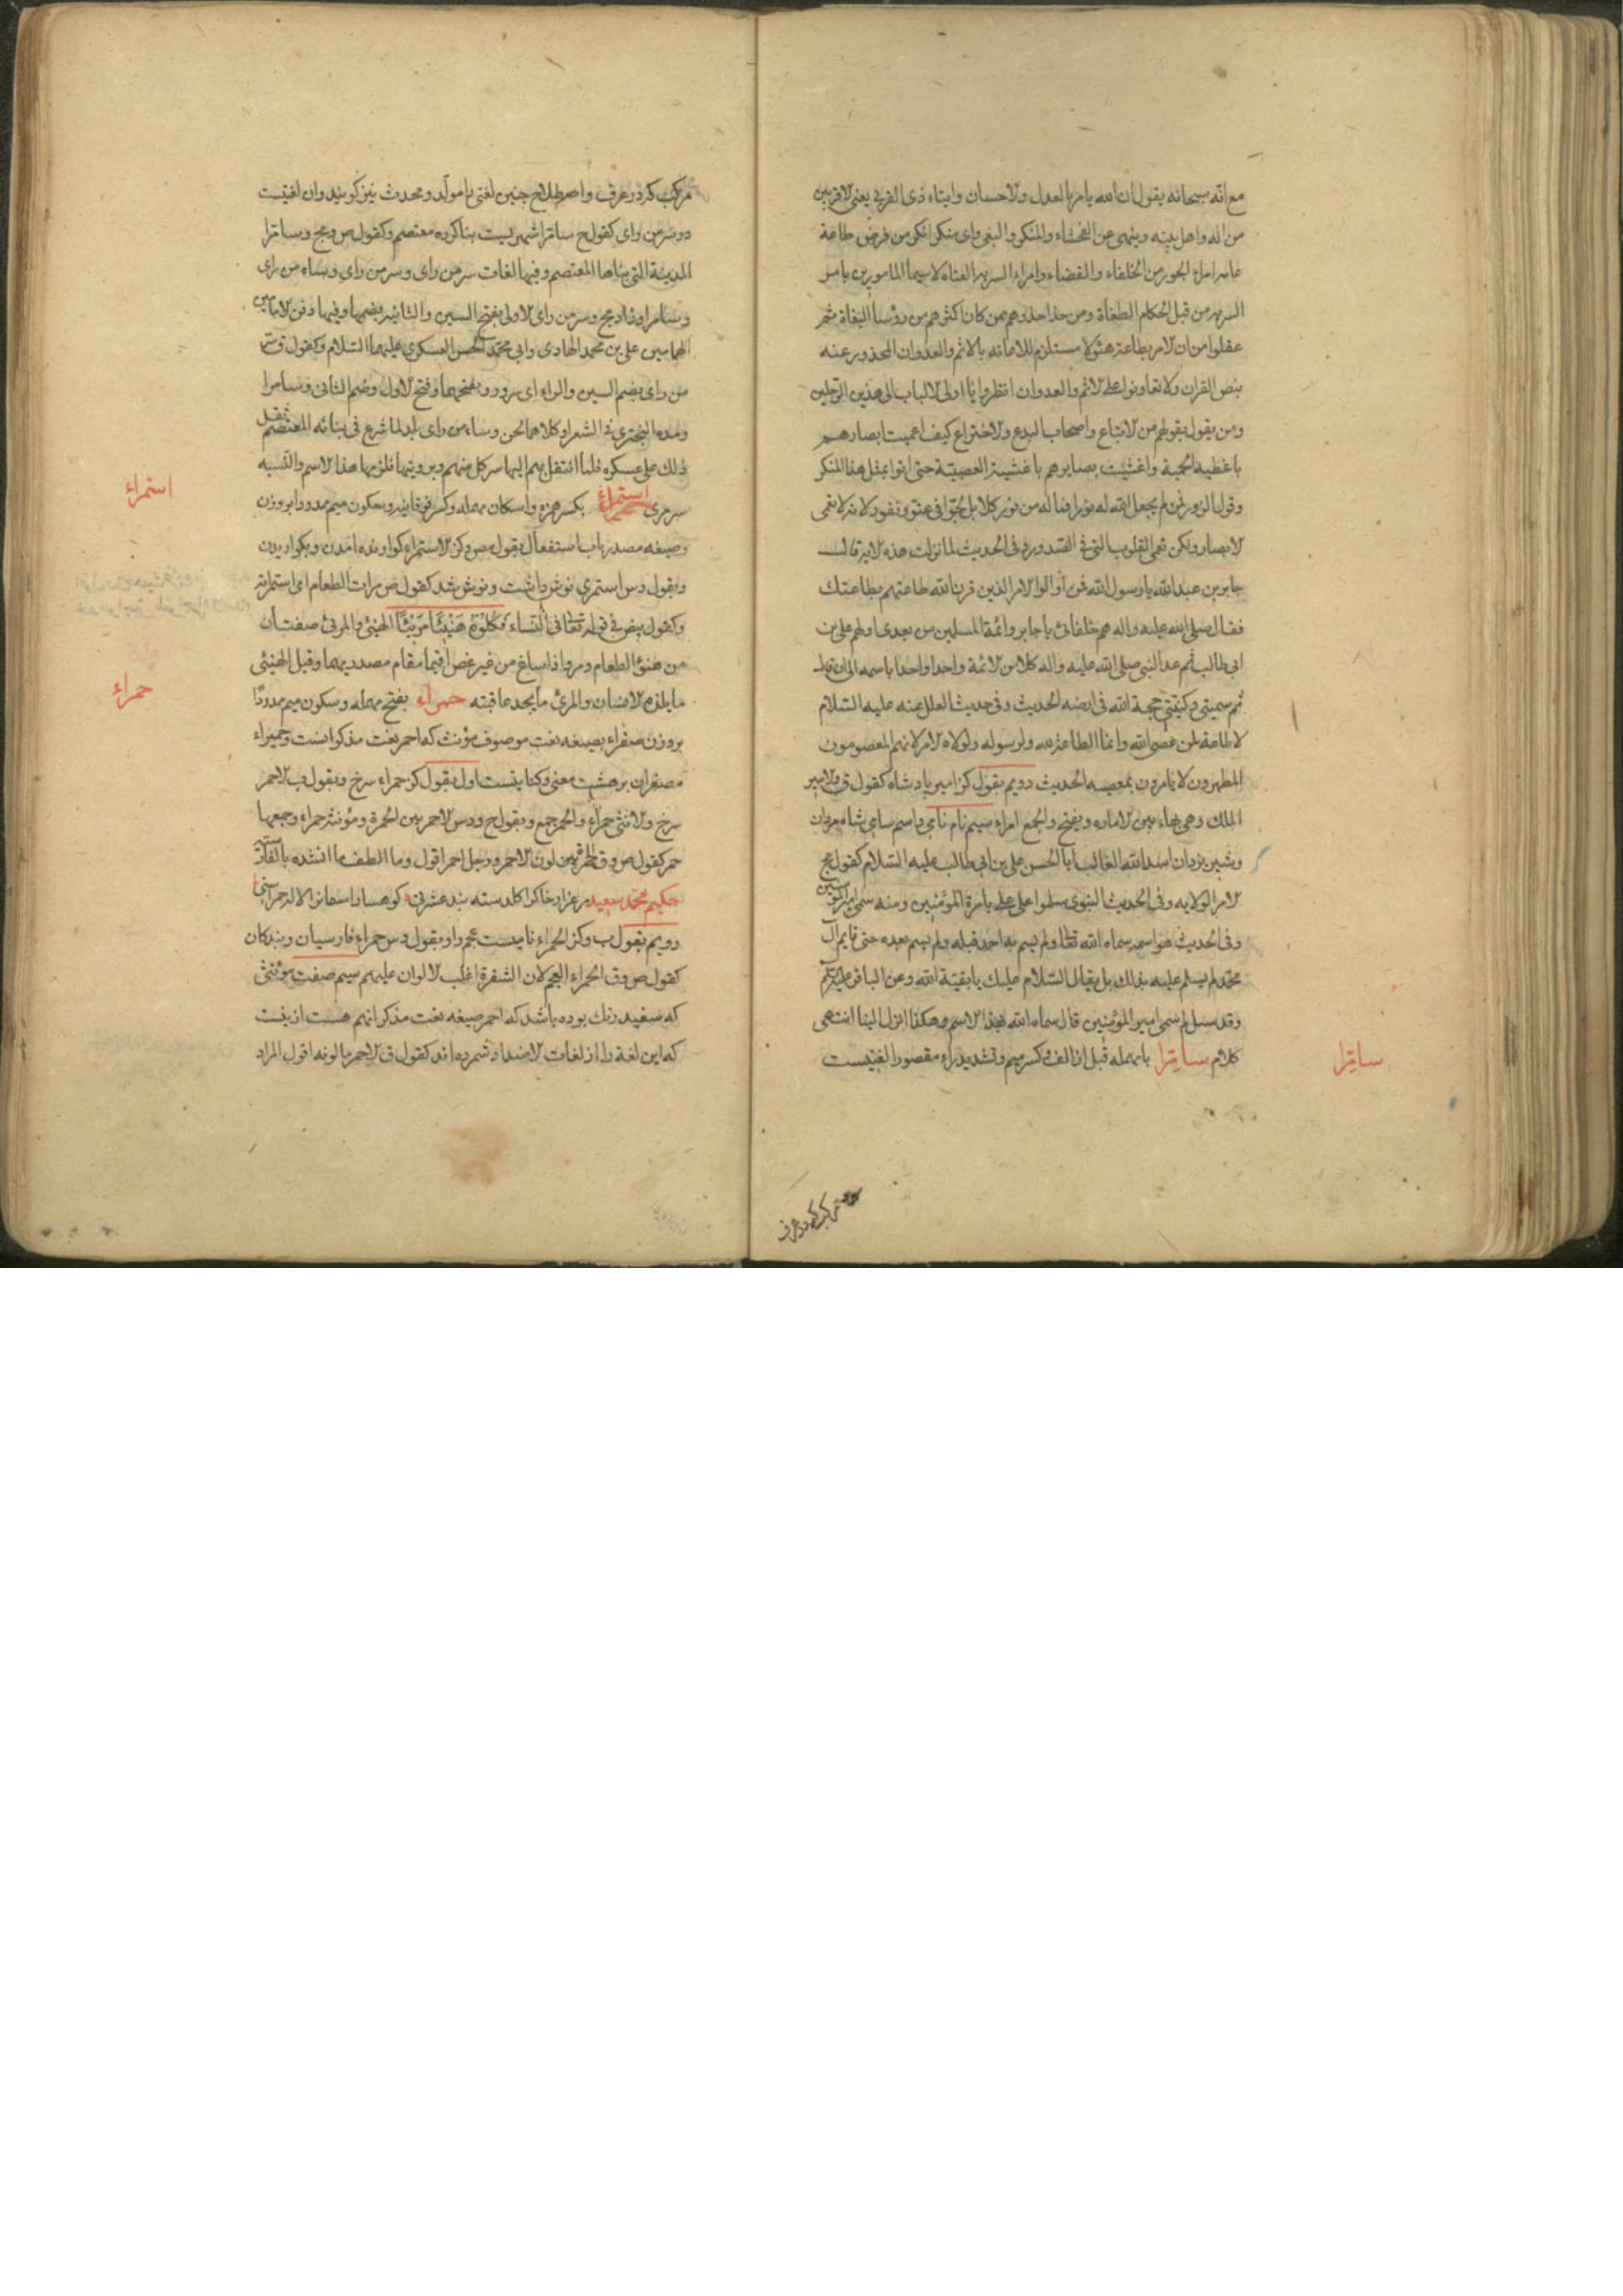 مع انّه سبحانه يقول ان الله يامر بالعدل والاحسان وايتاء ذى القربى يعنى الاقربين
من اله واهل بيته وينهى عن الفحشاء والمنكر والبغى واى منكر انكر من فرض طاعة
عامر امراء الجور من الخلفاء والقضاء وامراء السريه العتاه لاسيما المامورين بامر
السريه من قبل الحكام الطغاة ومن حذا حذوهم ممن كان اكثرهم من رؤسا البغاة ثم
عقلوا من ان الامر بطاعة هؤلاء مستلزم للامانه بالاثم والعدوان المحذور عنه
بنص القران ولا تعاونوا على الاثم والعدوان انظروا يا اولى الالباب الى هذين الرجلين
ومن يقول بقولهم من الاتباع واصحاب البدع والاختراع كيف اعميت ابصارهم
باغطية الحمية واغشيت بصايرهم باغشية العصبيّة حتى اتوا بمثل هذا المنكر
وقول الزور فمن لم يجعل الله له نورا فما له من نور كلا بل لجّوا فى عتو ونفور لانه لا تعمى
الابصار ولكن تعمى القلوب التى فى الصّدور وفى الحديث لما نزلت هذه الاية قال
جابر بن عبدالله يا رسول الله فمن اولوا الامر الذين قرن الله طاعتهم بطاعتك
فقال صلى الله عليه واله هم خلفائى يا جابر وائمة المسلمين من بعدى اولهم على بن
ابى طالب ثم عد النبى صلى الله عليه واله كلا من الائمة واحدا واحدا باسمه الى ان قال
ثم سميتى وكنيتى حجة الله فى ارضه الحديث وفى حديث العلل عنه عليه السّلام
لا طاعة لمن عصى الله وانما الطاعة لله ولرسوله ولولاه الامر لانهم المعصومون
المطهرون لا يامرون بمعصية الحديث دويم بقول كز امير پادشاه كقول ق والامير
الملك وهى بهاء بين الاماره ويفتح والجمع امراء سيم نام نامى واسم سامى شاه مردان
وشير يزدان اسدالله الغالب ابا الحسن على بن ابى طالب عليه السّلام كقول مج
الامر الولايه وفى الحديث النبوى سلموا على على بامرة المؤمنين ومنه سمى امير المؤمنين
وفى الحديث هو اسم سماه الله تعالى ولم يسم به احد قبله ولم يسم بعده حتى قايم ال
محمّد لم يسلم عليه بذلك بل يقال السّلام عليك يا بقيّة الله وعن الباقر عليه السّلم
وقد سئل لم سمى امير المؤمنين قال سماه الله بهذا الاسم وهكذا انزل الينا انتهى
كلام سامِرّا بامهمله قبل از الف وكسر ميم وتشديد راء مقصورا لغتيست
سامِرّا
مركب كه در عرف
مركب كه در عرف واصطلاح چنين لغتى را مولّد ومحدث نيز كويند وان لغيتست
در سر من راى كقول ح سامرّا شهريست بنا كرده معتصم وكقول ص ومج وسامّرا
المدينة التى بناها المعتصم وفيها لغات سر من راى وسر من راى وساء من راى
وسامرا وزاد مج وسر من راى الاولى بفتح السين والثانيه بضمها وفيها دفن الامامين
الهمامين على بن محمد الهادى وابى محمّد الحسن العسكرى عليهما السّلام وكقول ق وسر
من راى بضم السين والراء اى سرور وبفتحهما وفتح الاول وضم الثانى وسامرا
ومده البحترى فى الشعر او كلاهما لحن وساء من راى بلد لما شرع فى بنائه المعتصم ثقل
ذلك على عسكره فلما انتقل بهم اليها سر كل منهم برويتها فلزمها هذا الاسم والنّسبه
سرمرى استمراء بكسر همزه واسكان مهمله وكسر فوقانيه وسكون ميم ممدودا بر وزن
وصيغه مصدر باب استفعال بقول ص وكز الاستمراء كوارنده امدن وبكواريدن
وبقول دس استمرى نوش داشت ونوش شد كقول ص مرات الطعام اى استمراته
وكقول بيض فى قوله تعالى فى النّساء فَكُلُوْهُ هَنِيْئًا مَرِيْئًا الهنيئ والمرئ صفتان
من هنؤ الطعام ومرؤ اذا ساغ من غير غصّ اقيما مقام مصدريهما وقيل الهنيئ
ما يلذه الانسان والمرئ ما يحمد عاقبته حمراء بفتح مهمله وسكون ميم ممدودًا
بر وزن صفراء بصيغه نعت موصوف مؤنث كه احمر نعت مذكر انست وحميراء
مصغر ان بر هشت معنى وكنايتست اول بقول كز حمراء سرخ وبقول ب الاحمر
سرخ والانثى حمراء والحمر جمع وبقول ح ودس الاحمر بين الحمرة ومؤنثه حمراء وجمعها
حمر كقول ص وق الحمرة من لون الاحمر ورجل احمر اقول وما الطف ما انشده بالفارسيّة
حكيم محمّد سعيد
دويم بقول ب وكز الحمراء ناميست عجم را وبقول دس حمراء فارسيان وبندكان
كقول ص وق الحمراء العجم لان الشقرة اغلب الالوان عليهم سيم صفت مؤنثى
كه سفيد رنك بوده باشد كه احمر صيغه نعت مذكر انهم هست ازينست
كه اين لغة را از لغات الاضداد شمرده اند كقول ق الاحمر ما لونه اقول المراد
استمراء
حمراء